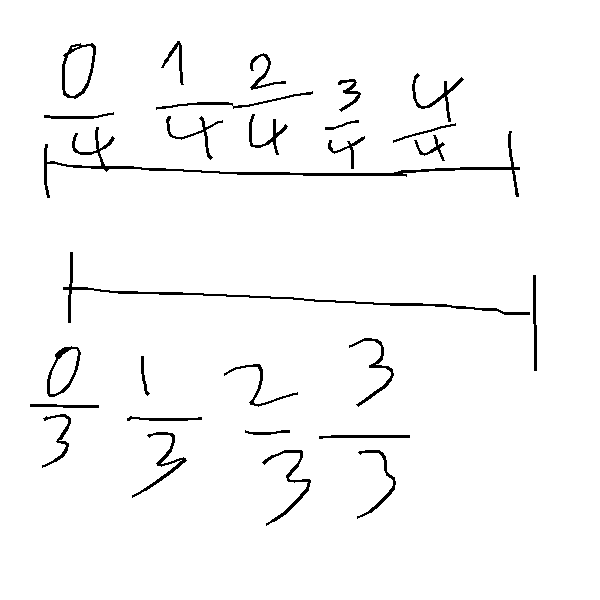 0/4 1/4 2/4 3/4 4/4
0/3 1/3 2/3 3/3